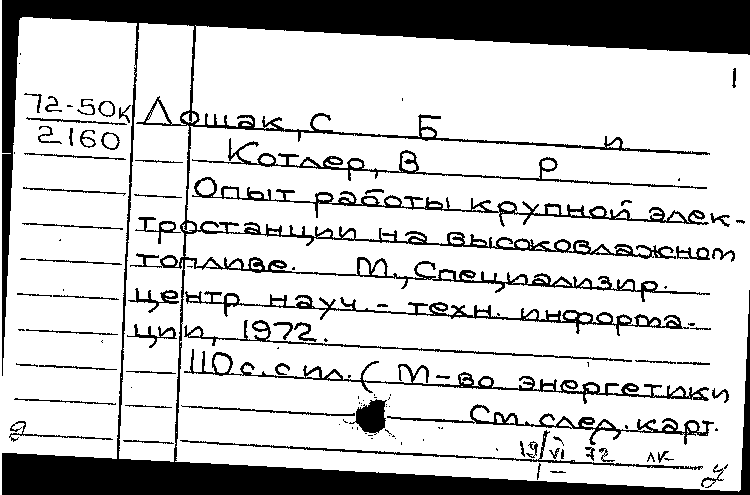 1
72-50к Лошак, С Б и
2160 Котлер, В Р
Опыт работы крупной элек-
тростанции на высоковлажном
топливе. М., Специализир.
центр науч.- техн. информа-
ции, 1972.
110 с. с ил. ( М-во энергетики
См. след. карт.
19/VI 72